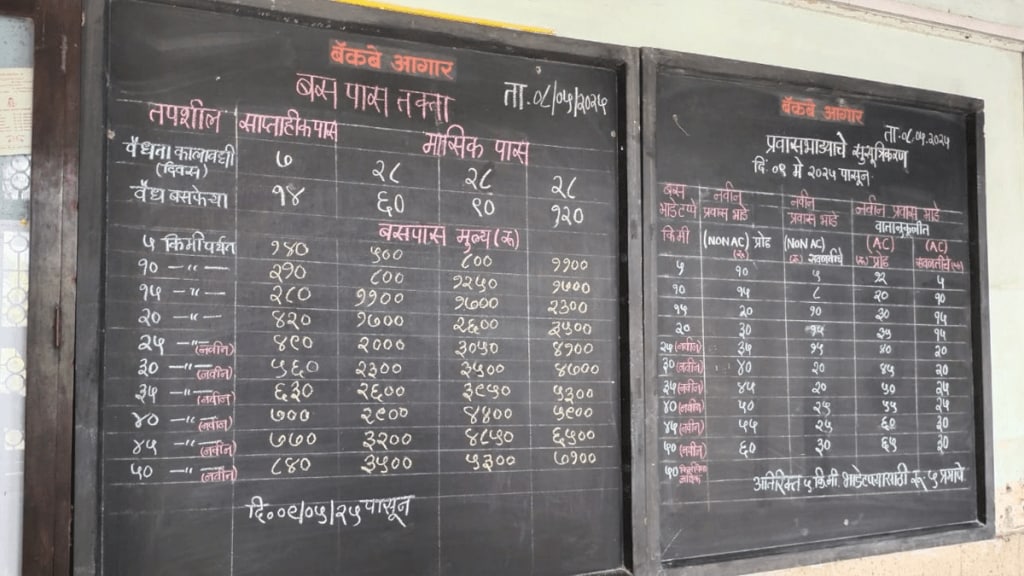 बॅकबे आगार
बस पास तक्ता ता. ०८/०५/२०२५
तपशील साप्ताहीक पास मासिक पास
वैधता कालावधी (दिवस) ७ २८ २८ २८
वैध बसफेऱ्या १४ ६० ९० १२०
बसपास मूल्य (रू)
५ किमीपर्यंत १४० ५०० ८०० ११००
१० —"— २१० ८०० १२५० १७००
१५ —"— २८० ११०० १७०० २३००
२० —"— ४२० १७०० २६०० ३५००
२५ —"— (नवीन) ४९० २००० ३०५० ४१००
३० —"— (नवीन) ५६० २३०० ३५०० ४७००
३५ —"— (नवीन) ६३० २६०० ३९५० ५३००
४० —"— (नवीन) ७०० २९०० ४४०० ५९००
४५ —"— (नवीन) ७७० ३२०० ४८५० ६५००
५० —"— (नवीन) ८४० ३५०० ५३०० ७१००
दि. ०९/०५/२५ पासून
बॅकबे आगार
ता. ०८.०५.२०२५
प्रवासभाड्याचे सुसूत्रिकरण
दि. ०९ मे २०२५ पासून
बस भाडेटप्पे किमी नवीन प्रवास भाडे (NON AC) प्रौढ (रू) नवीन प्रवास भाडे (NON AC) (रू) नवीन प्रवास भाडे वातानुकूलीत (AC) (रू) प्रौढ (AC)
५ १० ५ १२ ५
१० १५ ८ २० १०
१५ २० १० ३० १५
२० ३० १५ ३५ १५
२५ (नवीन) ३५ १५ ४० २०
३० (नवीन) ४० २० ४५ २०
३५ (नवीन) ४५ २० ५० २५
४० (नवीन) ५० २५ ५५ २५
४५ (नवीन) ५५ २५ ६० ३०
५० (नवीन) ६० ३० ६५ ३०
५० अतिरिक्त ५ कि.मी भाडेटप्यासाठी रू ५ प्रमाणे